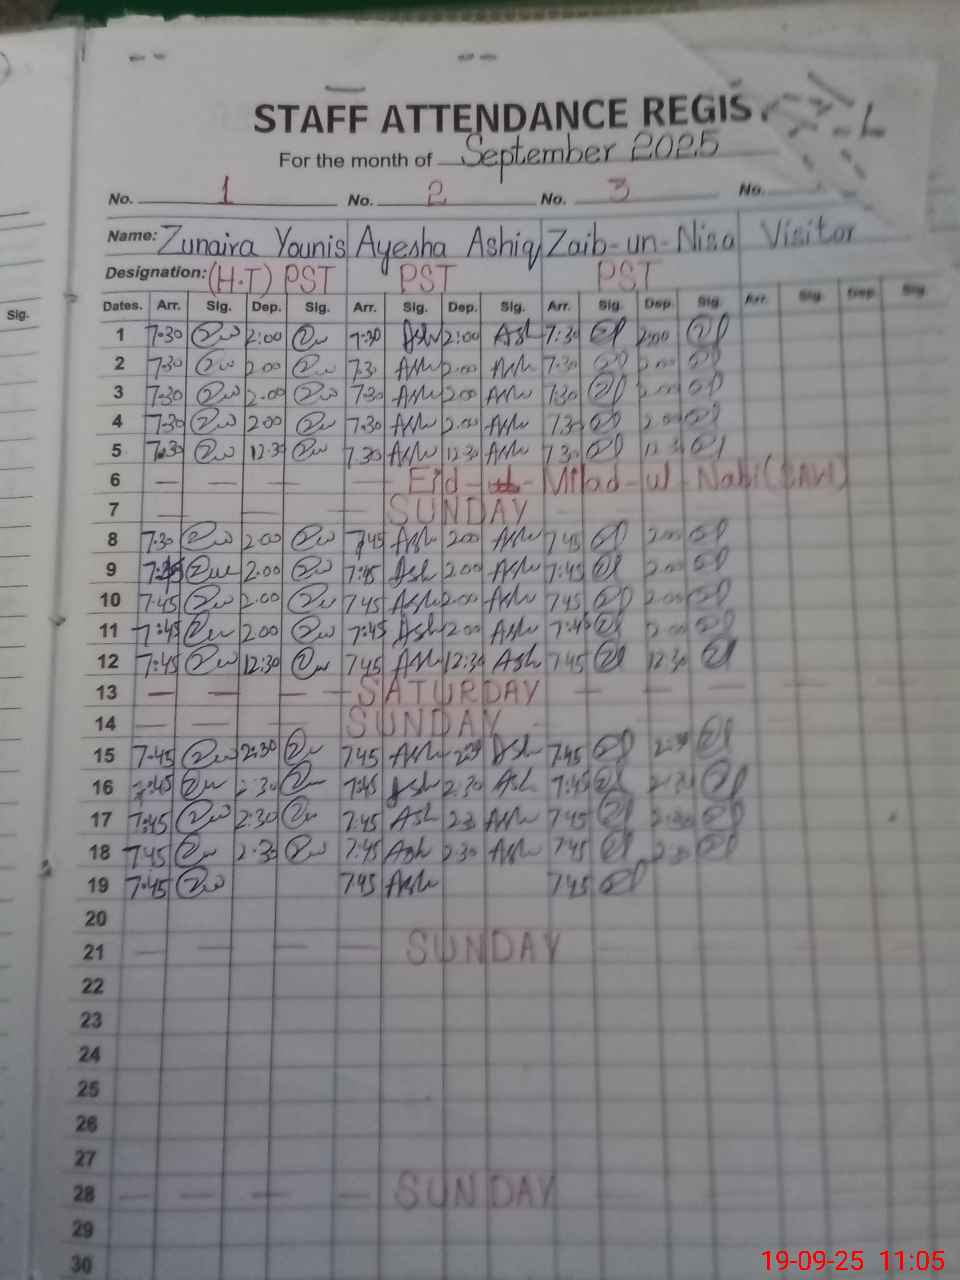 STAFF ATTENDANCE REGIS
For the month of September 2025
No. 1 No. 2 No. 3 No.
Name: Zunaira Younis Ayesha Ashiq Zaib-un-Nisa Visitor
Designation: (H.T) PST PST PST
Sig. Dates. Arr. Sig. Dep. Sig. Arr. Sig. Dep. Sig. Arr. Sig. Dep. Sig. Arr. Sig. Dep. Sig.
1 7:30 2:00 7:30 Ash 2:00 Ash 7:30 2:00
2 7:30 2:00 7:30 Ash 2:00 Ash 7:30 2:00
3 7:30 2:00 7:30 Ash 2:00 Ash 7:30 2:00
4 7:30 2:00 7:30 Ash 2:00 Ash 7:30 2:00
5 7:30 12:30 7:30 Ash 12:30 Ash 7:30 12:30
6 — — — — Eid - Milad-ul-Nabi (SAW)
7 — — — — SUNDAY
8 7:30 2:00 7:45 Ash 2:00 Ash 7:45 2:00
9 2:00 7:45 Ash 2:00 Ash 7:45 2:00
10 7:45 2:00 7:45 Ash 2:00 Ash 7:45 2:00
11 7:45 2:00 7:45 Ash 2:00 Ash 7:45 2:00
12 7:45 12:30 7:45 Ash 12:30 Ash 7:45 12:30
13 — — — — SATURDAY — — — — —
14 — — — — SUNDAY
15 7:45 2:30 7:45 Ash 2:30 Ash 7:45 2:30
16 7:45 2:30 7:45 Ash 2:30 Ash 7:45 2:30
17 7:45 2:30 7:45 Ash 2:30 Ash 7:45 2:30
18 7:45 2:30 7:45 Ash 2:30 Ash 7:45 2:30
19 7:45 7:45 Ash 7:45
20
21 — — — — SUNDAY
22
23
24
25
26
27
28 — — — — SUNDAY
29
30
19-09-25 11:05